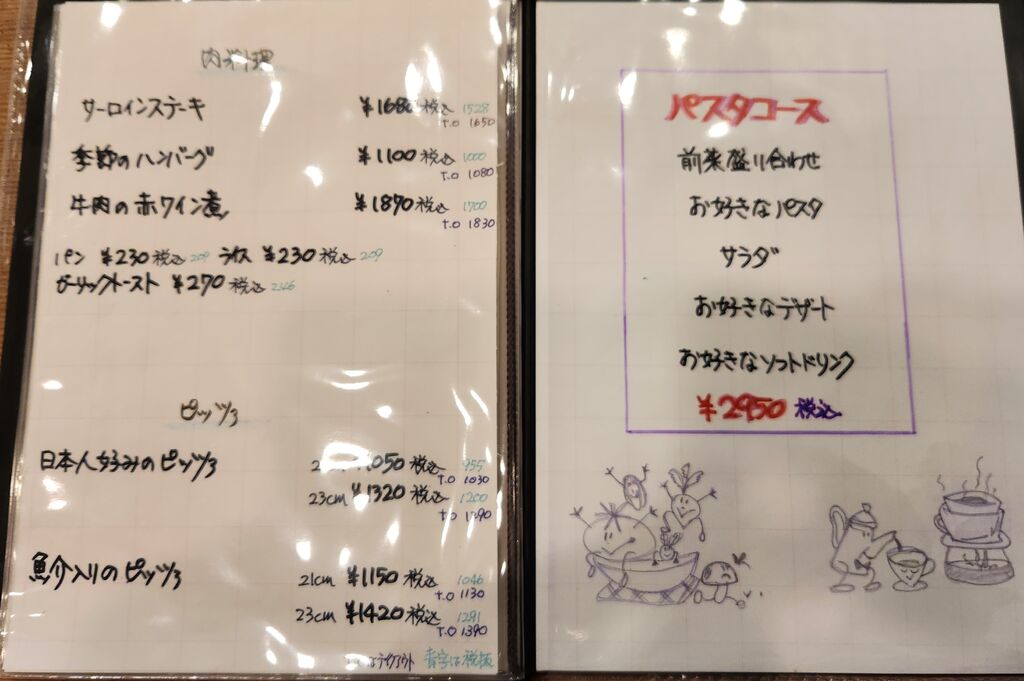 肉料理
サーロインステーキ ¥1680 税込 1528
T.O 1650
季節のハンバーグ ¥1100 税込 1000
T.O 1080
牛肉の赤ワイン煮 ¥1870 税込 1700
T.O 1830
パン ¥230 税込 209 ライス ¥230 税込 209
ガーリックトースト ¥270 税込 246
ピッツァ
日本人好みのピッツァ 1050 税込 955
T.O 1030
23cm ¥1320 税込 1200
T.O 1290
魚介入りのピッツァ 21cm ¥1150 税込 1046
T.O 1130
23cm ¥1420 税込 1291
T.O 1390
テイクアウト 青字は税抜
パスタコース
前菜盛り合わせ
お好きなパスタ
サラダ
お好きなデザート
お好きなソフトドリンク
¥2950 税込